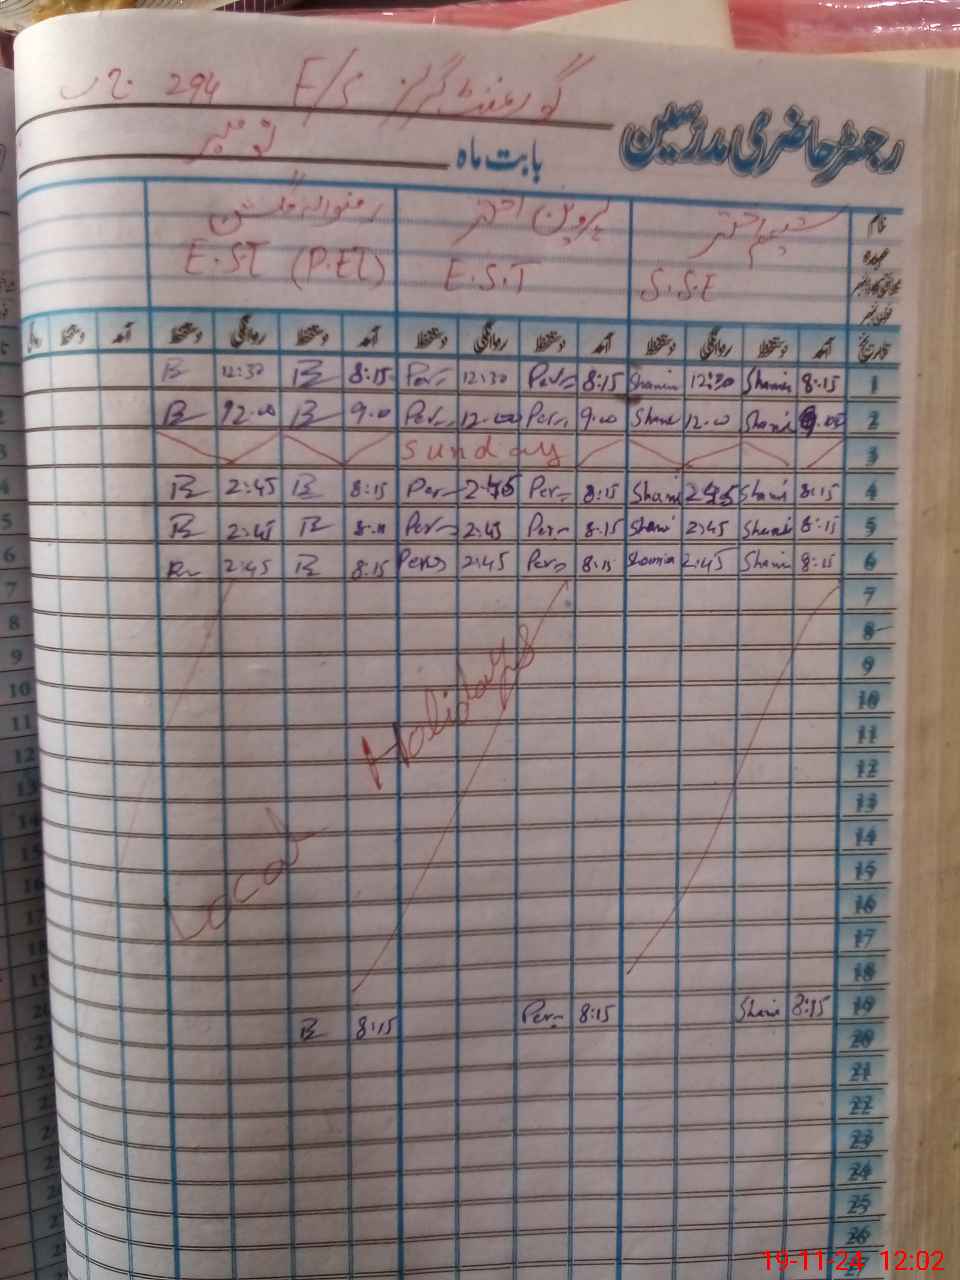 گورنمنٹ گرلز E/S 294 ج ب
رجسٹر حاضری مدرسین
بابت ماہ نومبر
نام شمیم اختر پروین اختر رضوانہ گلشن
عہدہ S.S.E E.S.T E.S.T (P.ET)
تاریخ آمد دستخط روانگی دستخط آمد دستخط روانگی دستخط آمد دستخط روانگی دستخط آمد دستخط
1 8:15 Shamim 12:30 Shamim 8:15 Per 12:30 Per 8:15 B 12:30 B
2 9:00 Shami 12:00 Shami 9:00 Per 12:00 Per 9:0 B 12:00 B
3 Sunday
4 8:15 Shami 2:45 Shami 8:15 Per 2:45 Per 8:15 B 2:45 B
5 8:15 Shami 2:45 Shami 8:15 Per 2:45 Per B 2:45 B
6 8:15 Shami 2:45 Shamim 8:15 Per 2:45 Per 8:15 B 2:45
7
8
9
10
11
12
13
14
15
16
17
18
Local Holidays
19 8:15 Shami 8:15 Per 8:15 B
20
21
22
23
24
25
26
27
19-11-24 12:02